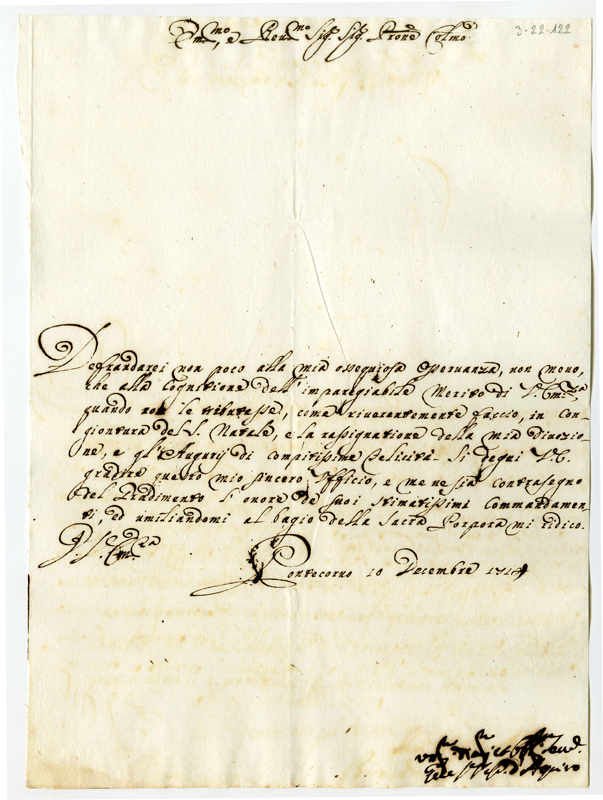 3-22-122
Em.mo, e Reu.mo Sig. Sig. Prone Colmo.
Defraudarei non poco alla mia ossequiosa osseruanza, non meno,
che alla Cognitione dell'impareggiabile Merito di V. Em.za,
quando non le tributasse, come riuerentemente faccio, in Con-
giontura del S. Natale, e la rassignatione della mia Diuozio-
ne, e gl'Augurij di Compitissime Felicità. Si degni V. E.
gradire questo mio sincero Officio, e me ne sia Contrasegno
del Gradimento l'onore de suoi stimatissimi Commandamen-
ti, ed umiliandomi al bagio della Sacra Porpora mi ridico.
Di V. Em.za
Pontecoruo 10 Decembre 171
d'Aquino